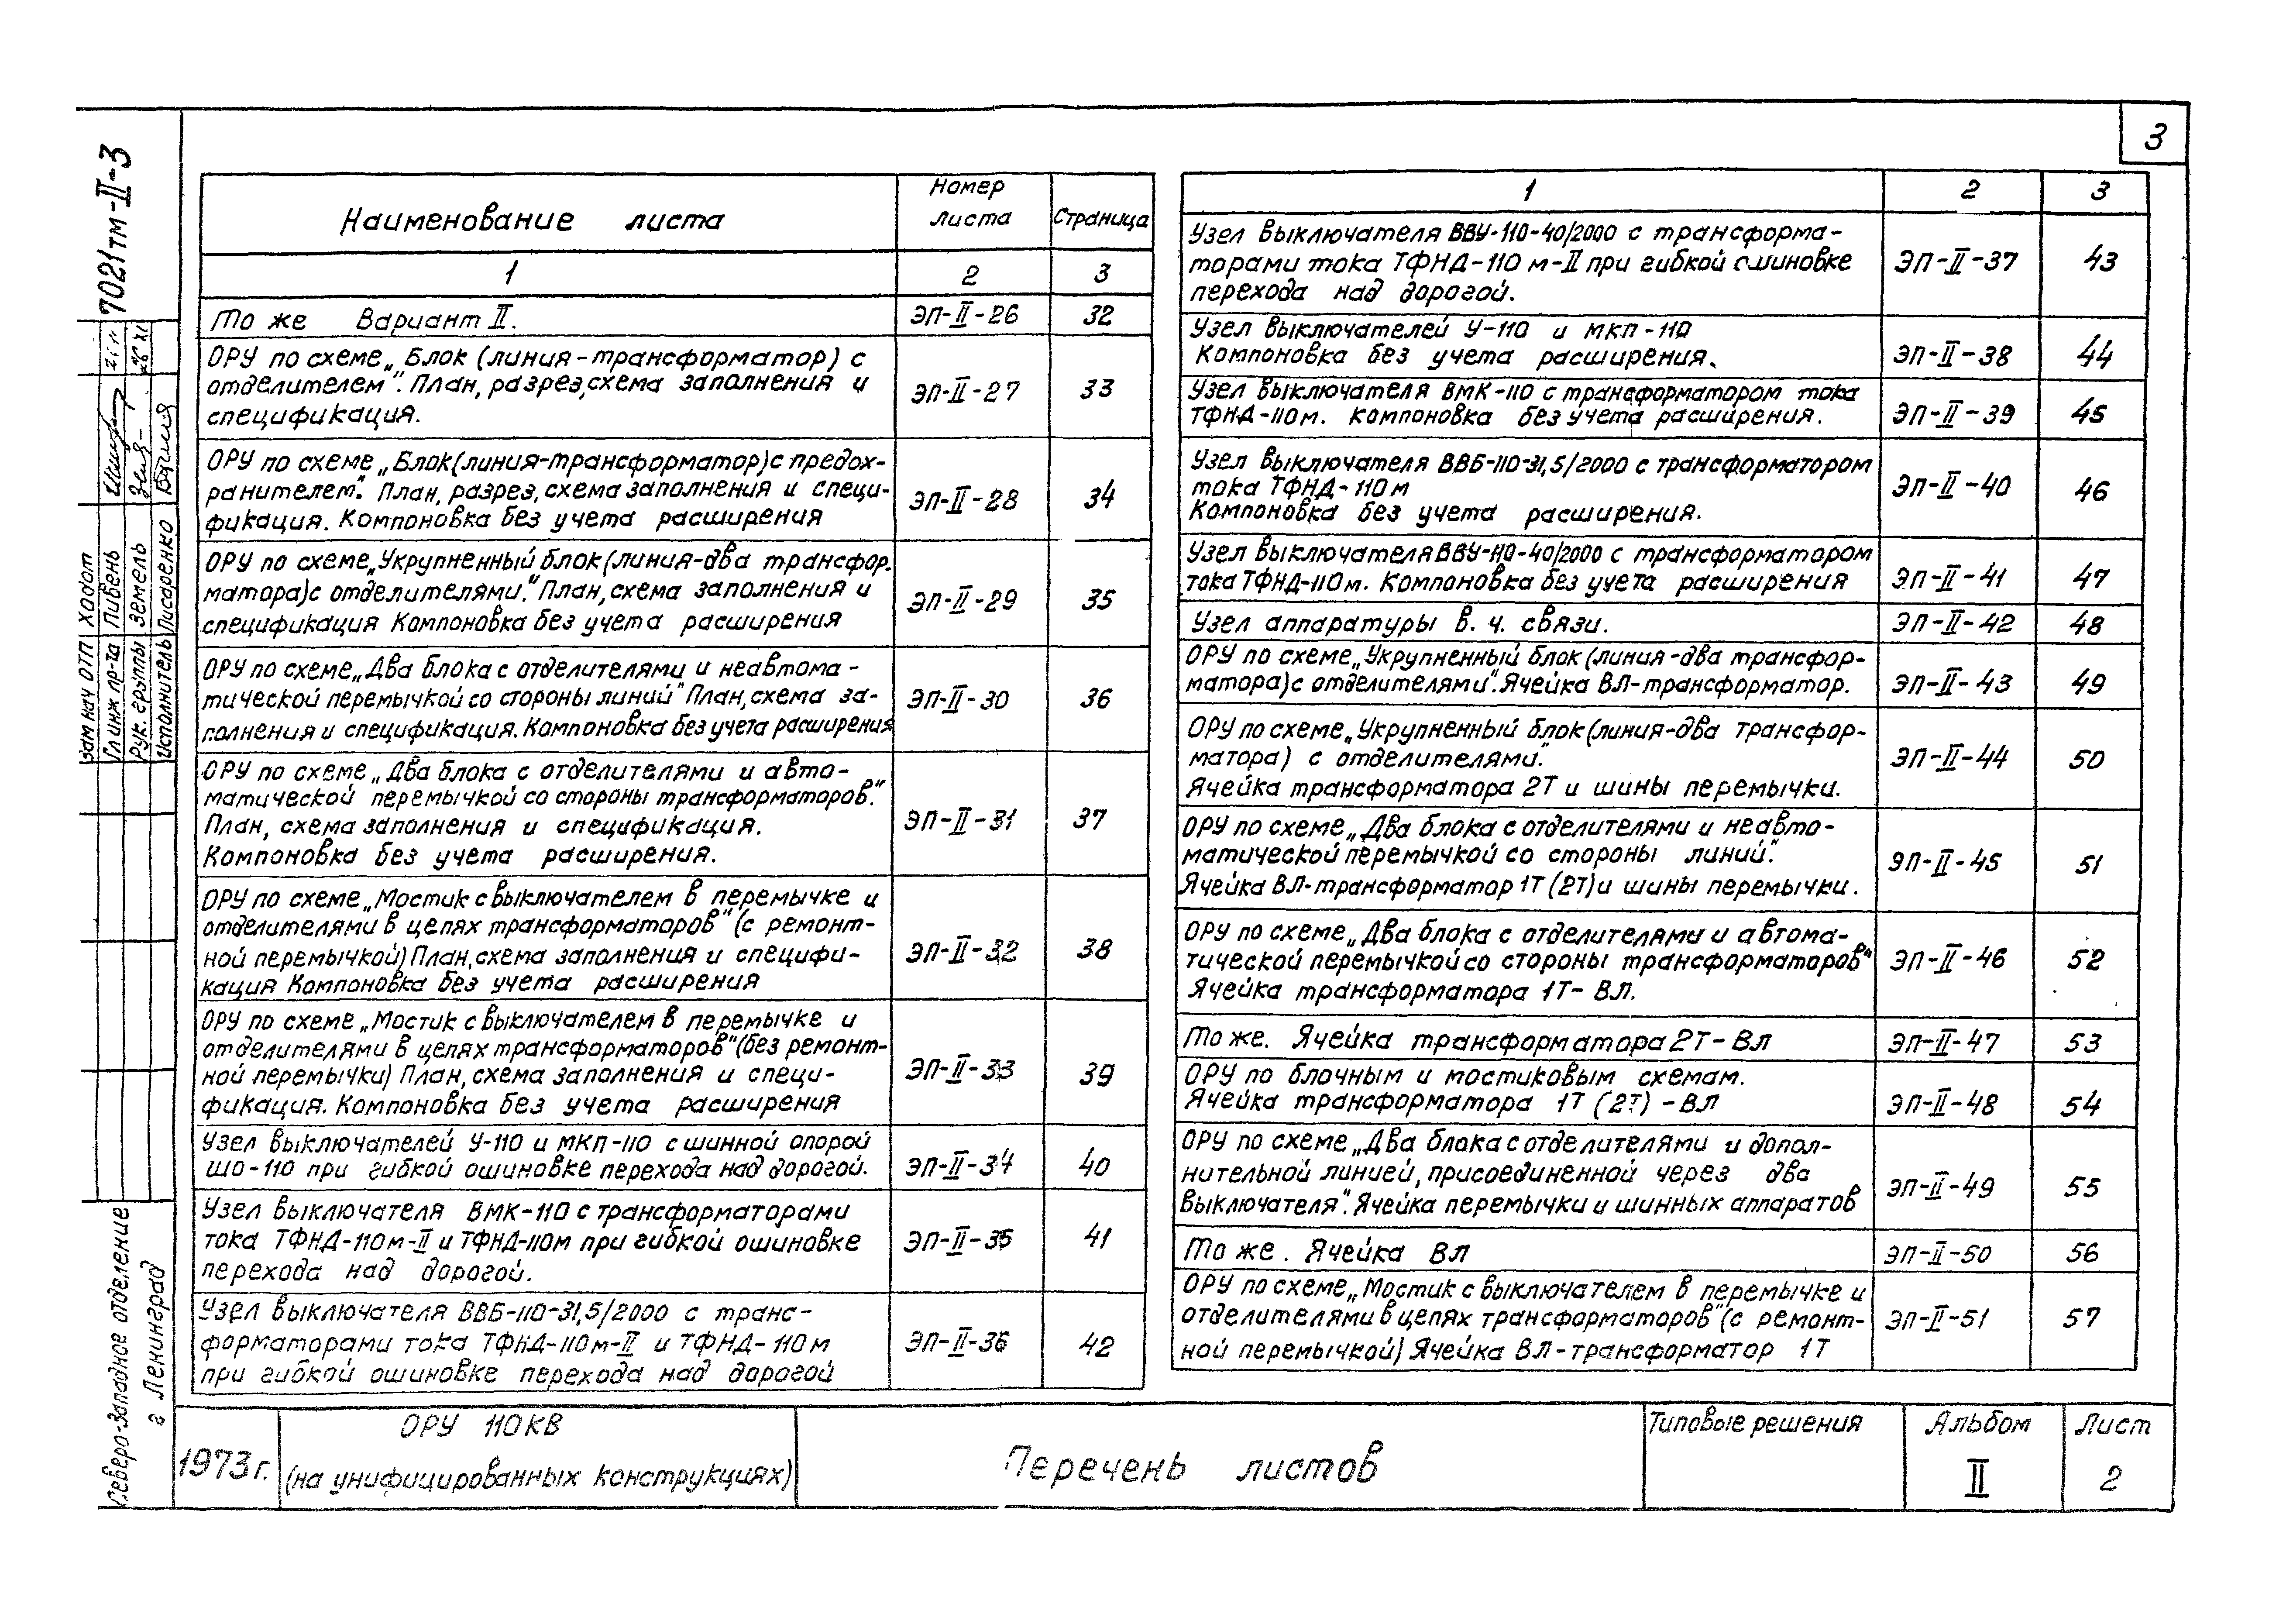 3
7021тм-II-3
Наименование листа
Номер листа
Страница
1
2
3
То же Вариант II.
ЭП-II-26
32
ОРУ по схеме „Блок (линия-трансформатор) с
отделителем". План, разрез, схема заполнения и
спецификация.
ЭП-II-27
33
ОРУ по схеме „Блок(линия-трансформатор)с предох-
ранителем". План, разрез, схема заполнения и специ-
фикация. Компоновка без учета расширения
ЭП-II-28
34
ОРУ по схеме „Укрупненный блок (линия-два трансфор.
матора)с отделителями". План, схема заполнения и
спецификация Компоновка без учета расширения
ЭП-II-29
35
ОРУ по схеме „Два блока с отделителями и неавтома-
тической перемычкой со стороны линий" План, схема за-
полнения и спецификация. Компоновка без учета расширения
ЭП-II-30
36
ОРУ по схеме „Два блока с отделителями и авто-
матической перемычкой со стороны трансформаторов".
План, схема заполнения и спецификация.
Компоновка без учета расширения.
ЭП-II-31
37
ОРУ по схеме „Мостик с выключателем в перемычке и
отделителями в цепях трансформаторов" (с ремонт-
ной перемычкой) План, схема заполнения и специфи-
кация Компоновка без учета расширения
ЭП-II-32
38
ОРУ по схеме „Мостик с выключателем в перемычке и
отделителями в цепях трансформаторов" (без ремонт-
ной перемычки) План, схема заполнения и специ-
фикация. Компоновка без учета расширения
ЭП-II-33
39
Узел выключателей У-110 и МКП-110 с шинной опорой
ШО-110 при гибкой ошиновке перехода над дорогой.
ЭП-II-34
40
Узел выключателя ВМК-110 с трансформаторами
тока ТФНД-110м-II и ТФНД-110м при гибкой ошиновке
перехода над дорогой.
ЭП-II-35
41
Узел выключателя ВВБ-110-31,5/2000 с транс-
форматорами тока ТФНД-110м-II и ТФНД-110м
при гибкой ошиновке перехода над дорогой
ЭП-II-36
42
1
2
3
Узел выключателя ВВУ-110-40/2000 с трансформа-
торами тока ТФНД-110м-II при гибкой ошиновке
перехода над дорогой.
ЭП-II-37
43
Узел выключателей У-110 и МКП-110
Компоновка без учета расширения.
ЭП-II-38
44
Узел выключателя ВМК-110 с трансформатором тока
ТФНД-110м. Компоновка без учета расширения.
ЭП-II-39
45
Узел выключателя ВВБ-110-31,5/2000 с трансформатором
тока ТФНД-110м
Компоновка без учета расширения.
ЭП-II-40
46
Узел выключателя ВВУ-110-40/2000 с трансформатором
тока ТФНД-110м. Компоновка без учета расширения
ЭП-II-41
47
Узел аппаратуры в. ч. связи.
ЭП-II-42
48
ОРУ по схеме „Укрупненный блок (линия-два трансфор-
матора)с отделителями". Ячейка ВЛ-трансформатор.
ЭП-II-43
49
ОРУ по схеме „Укрупненный блок (линия-два трансфор-
матора) с отделителями".
Ячейка трансформатора 2Т и шины перемычки.
ЭП-II-44
50
ОРУ по схеме „Два блока с отделителями и неавто-
матической перемычкой со стороны линий".
Ячейка ВЛ-трансформатор 1Т (2Т) и шины перемычки.
ЭП-II-45
51
ОРУ по схеме „Два блока с отделителями и автома-
тической перемычкой со стороны трансформаторов"
Ячейка трансформатора 1Т-ВЛ.
ЭП-II-46
52
То же. Ячейка трансформатора 2Т-ВЛ
ЭП-II-47
53
ОРУ по блочным и мостиковым схемам.
Ячейка трансформатора 1Т (2Т) - ВЛ
ЭП-II-48
54
ОРУ по схеме „Два блока с отделителями и допол-
нительной линией, присоединенной через два
выключателя". Ячейка перемычки и шинных аппаратов
ЭП-II-49
55
То же. Ячейка ВЛ
ЭП-II-50
56
ОРУ по схеме „Мостик с выключателем в перемычке и
отделителями в цепях трансформаторов" (с ремонт-
ной перемычкой) Ячейка ВЛ-трансформатор 1Т
ЭП-II-51
57
Зам нач ОТП Ходот
Гл инж пр-та Ливень
Рук. группы Земель
Исполнитель Писаренко
Северо-Западное отделение
г Ленинград
1973г.
ОРУ 110КВ
(на унифицированных конструкциях)
Перечень листов
Типовые решения
Альбом
II
Лист
2